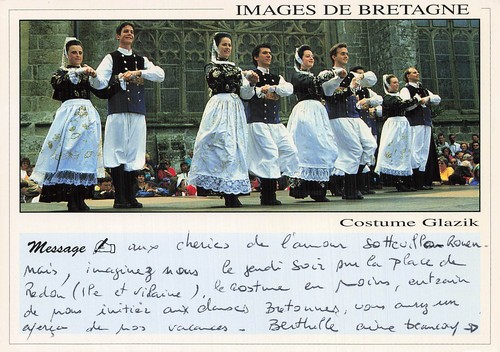 IMAGES DE BRETAGNE
Costume Glazik
Message aux cheries de l'amour Sotteville Rouen
Mais, imaginez nous le jeudi soir sur la place de
Redon (Ile et Vilaine), le costume en moins, entrain
de nous initier aux danses Bretonnes, vous aurez un
aperçu de nos vacances - Berthille aime beaucoup